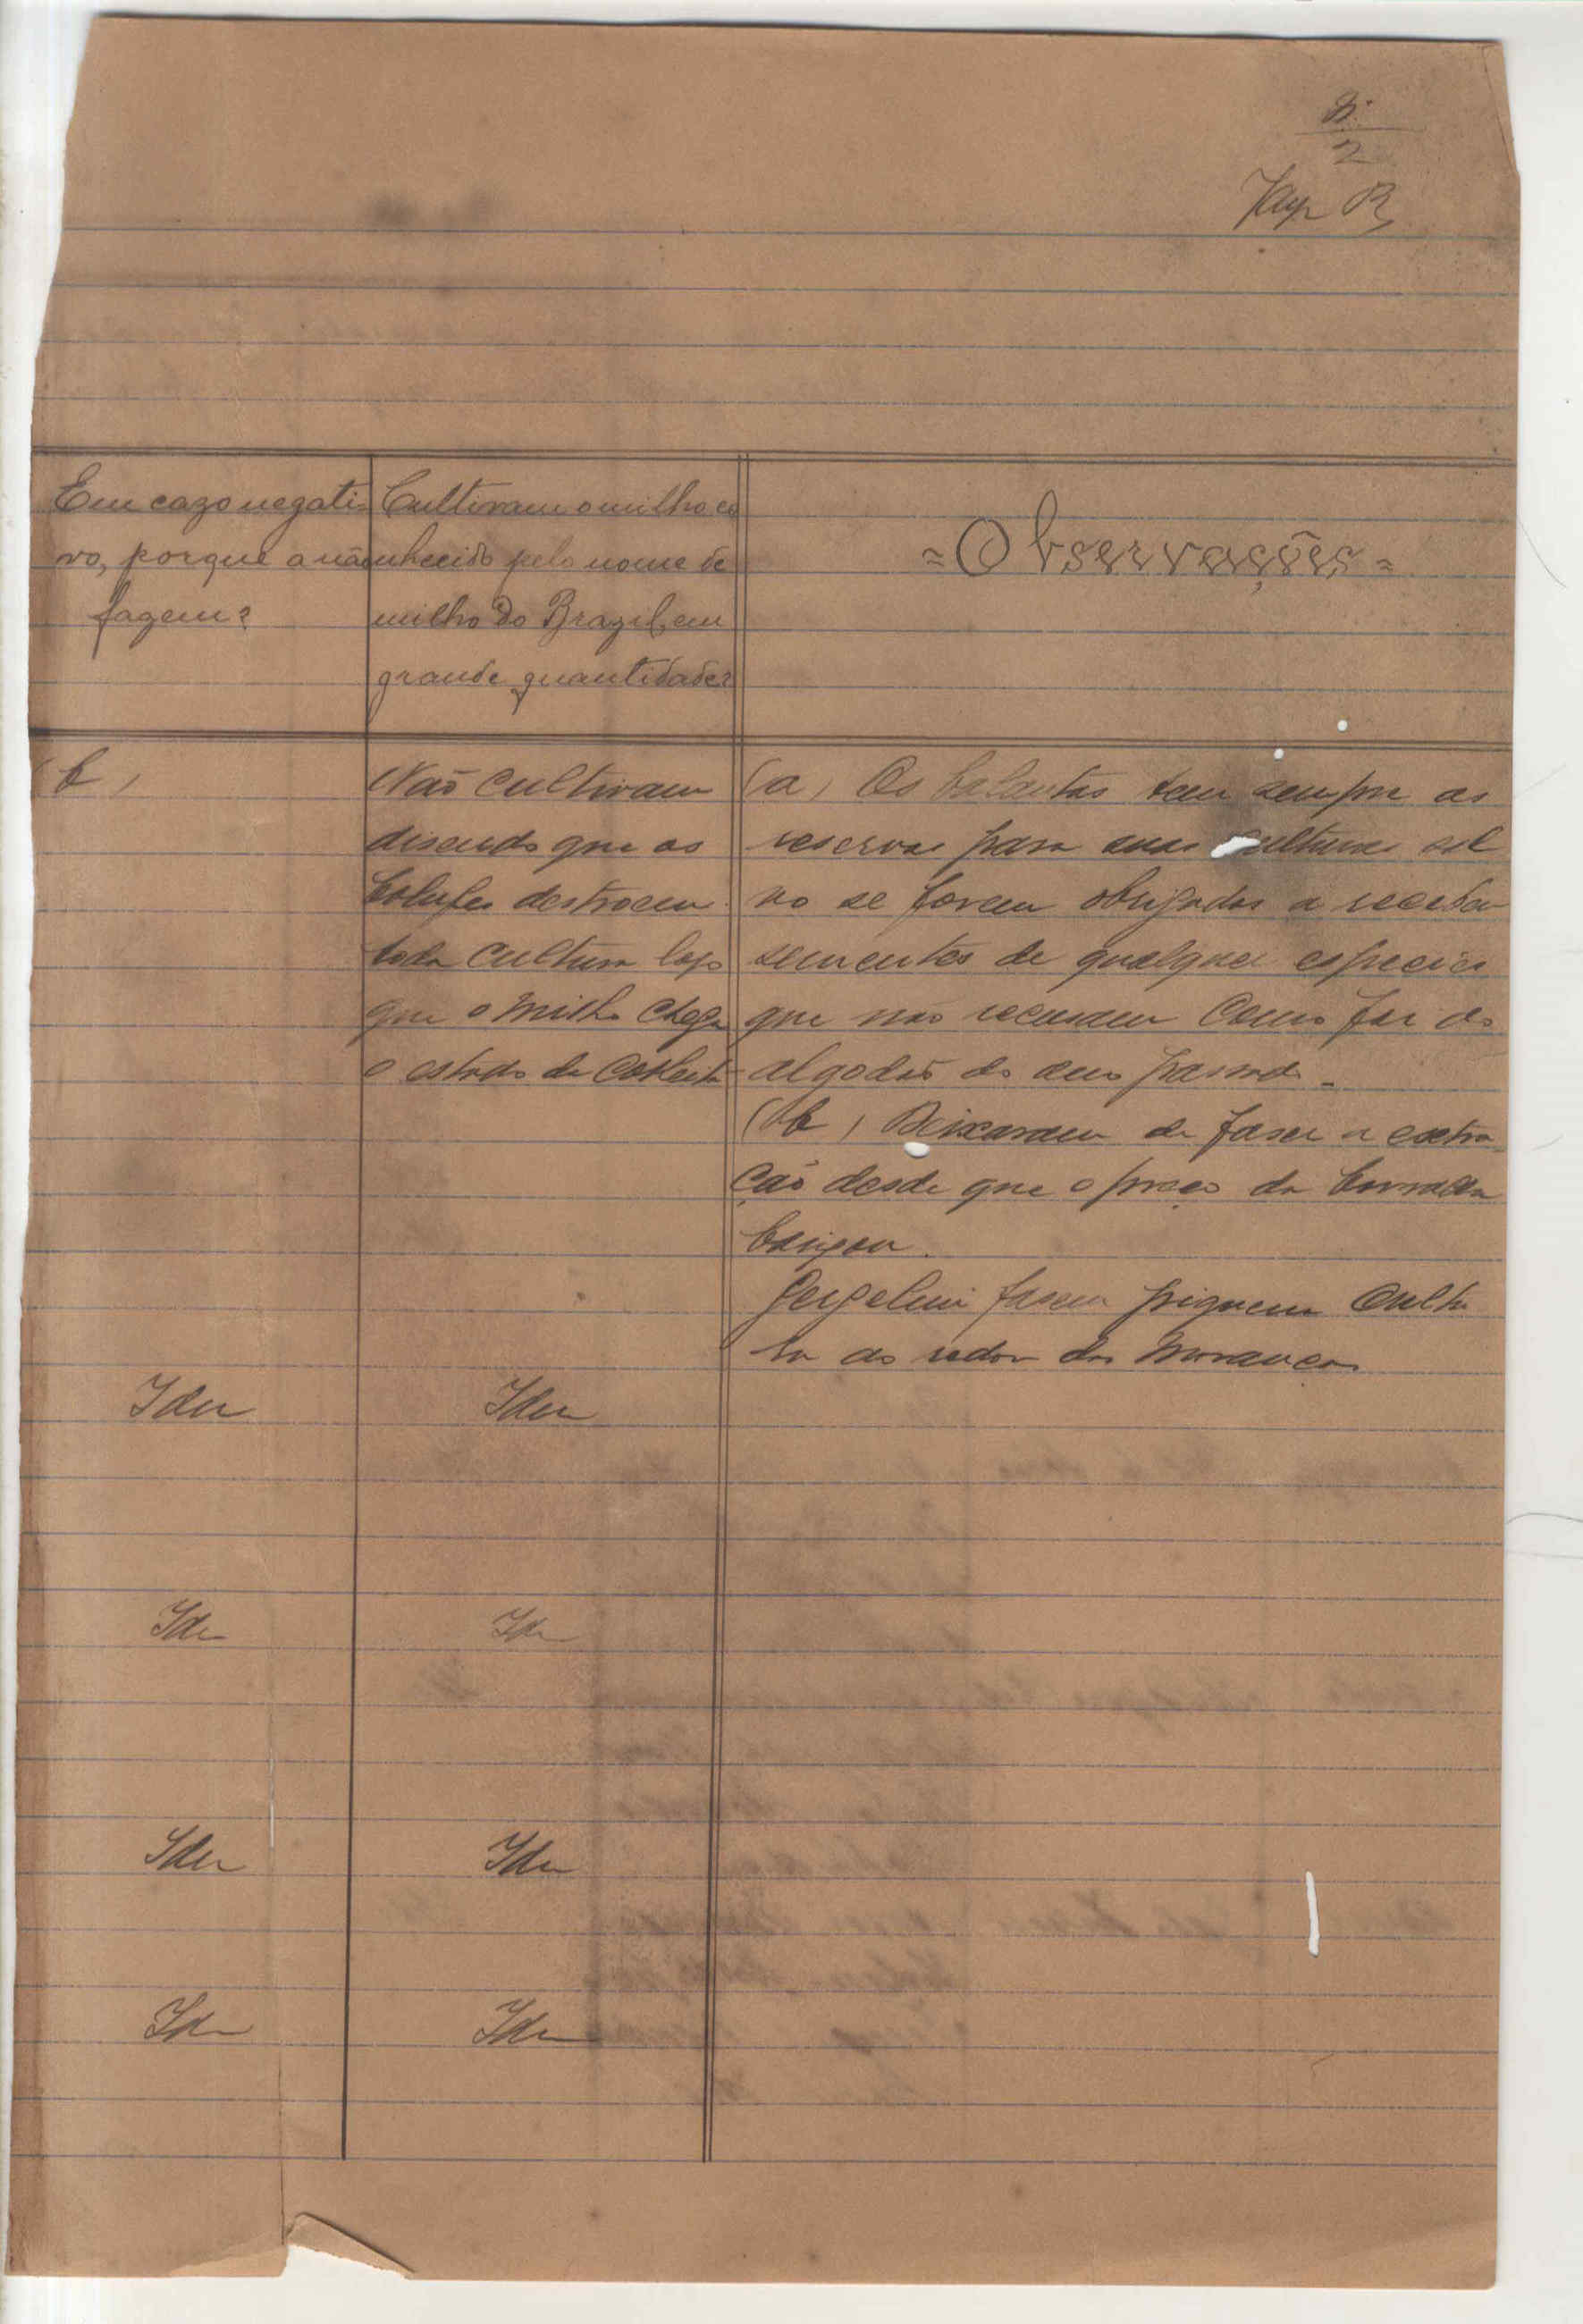 2
Em cazo negati-
vo, porque a não
fazem?
Cultivam o milho co
nhecido pelo nome de
milho do Brazil, em
grande quantidade?
=Observações=
(b)
Não cultivam
disendo que os
destroem
toda cultura logo
que o milho chega
o estado de colheita
(a) Os balantas tem sempre as
reservas para suas culturas sal
vo se forem obrigados a receber
sementes de qualquer especies
que não recusam como foi do
algodão do ano passado.
(b) Deixaram de faser a extra
ção desde que o preço da borracha
baixou.
Gergelim fasem piquena cultu
ra ao redor das moranças
Idem
Idem
Idem
Idem
Idem
Idem
Idem
Idem